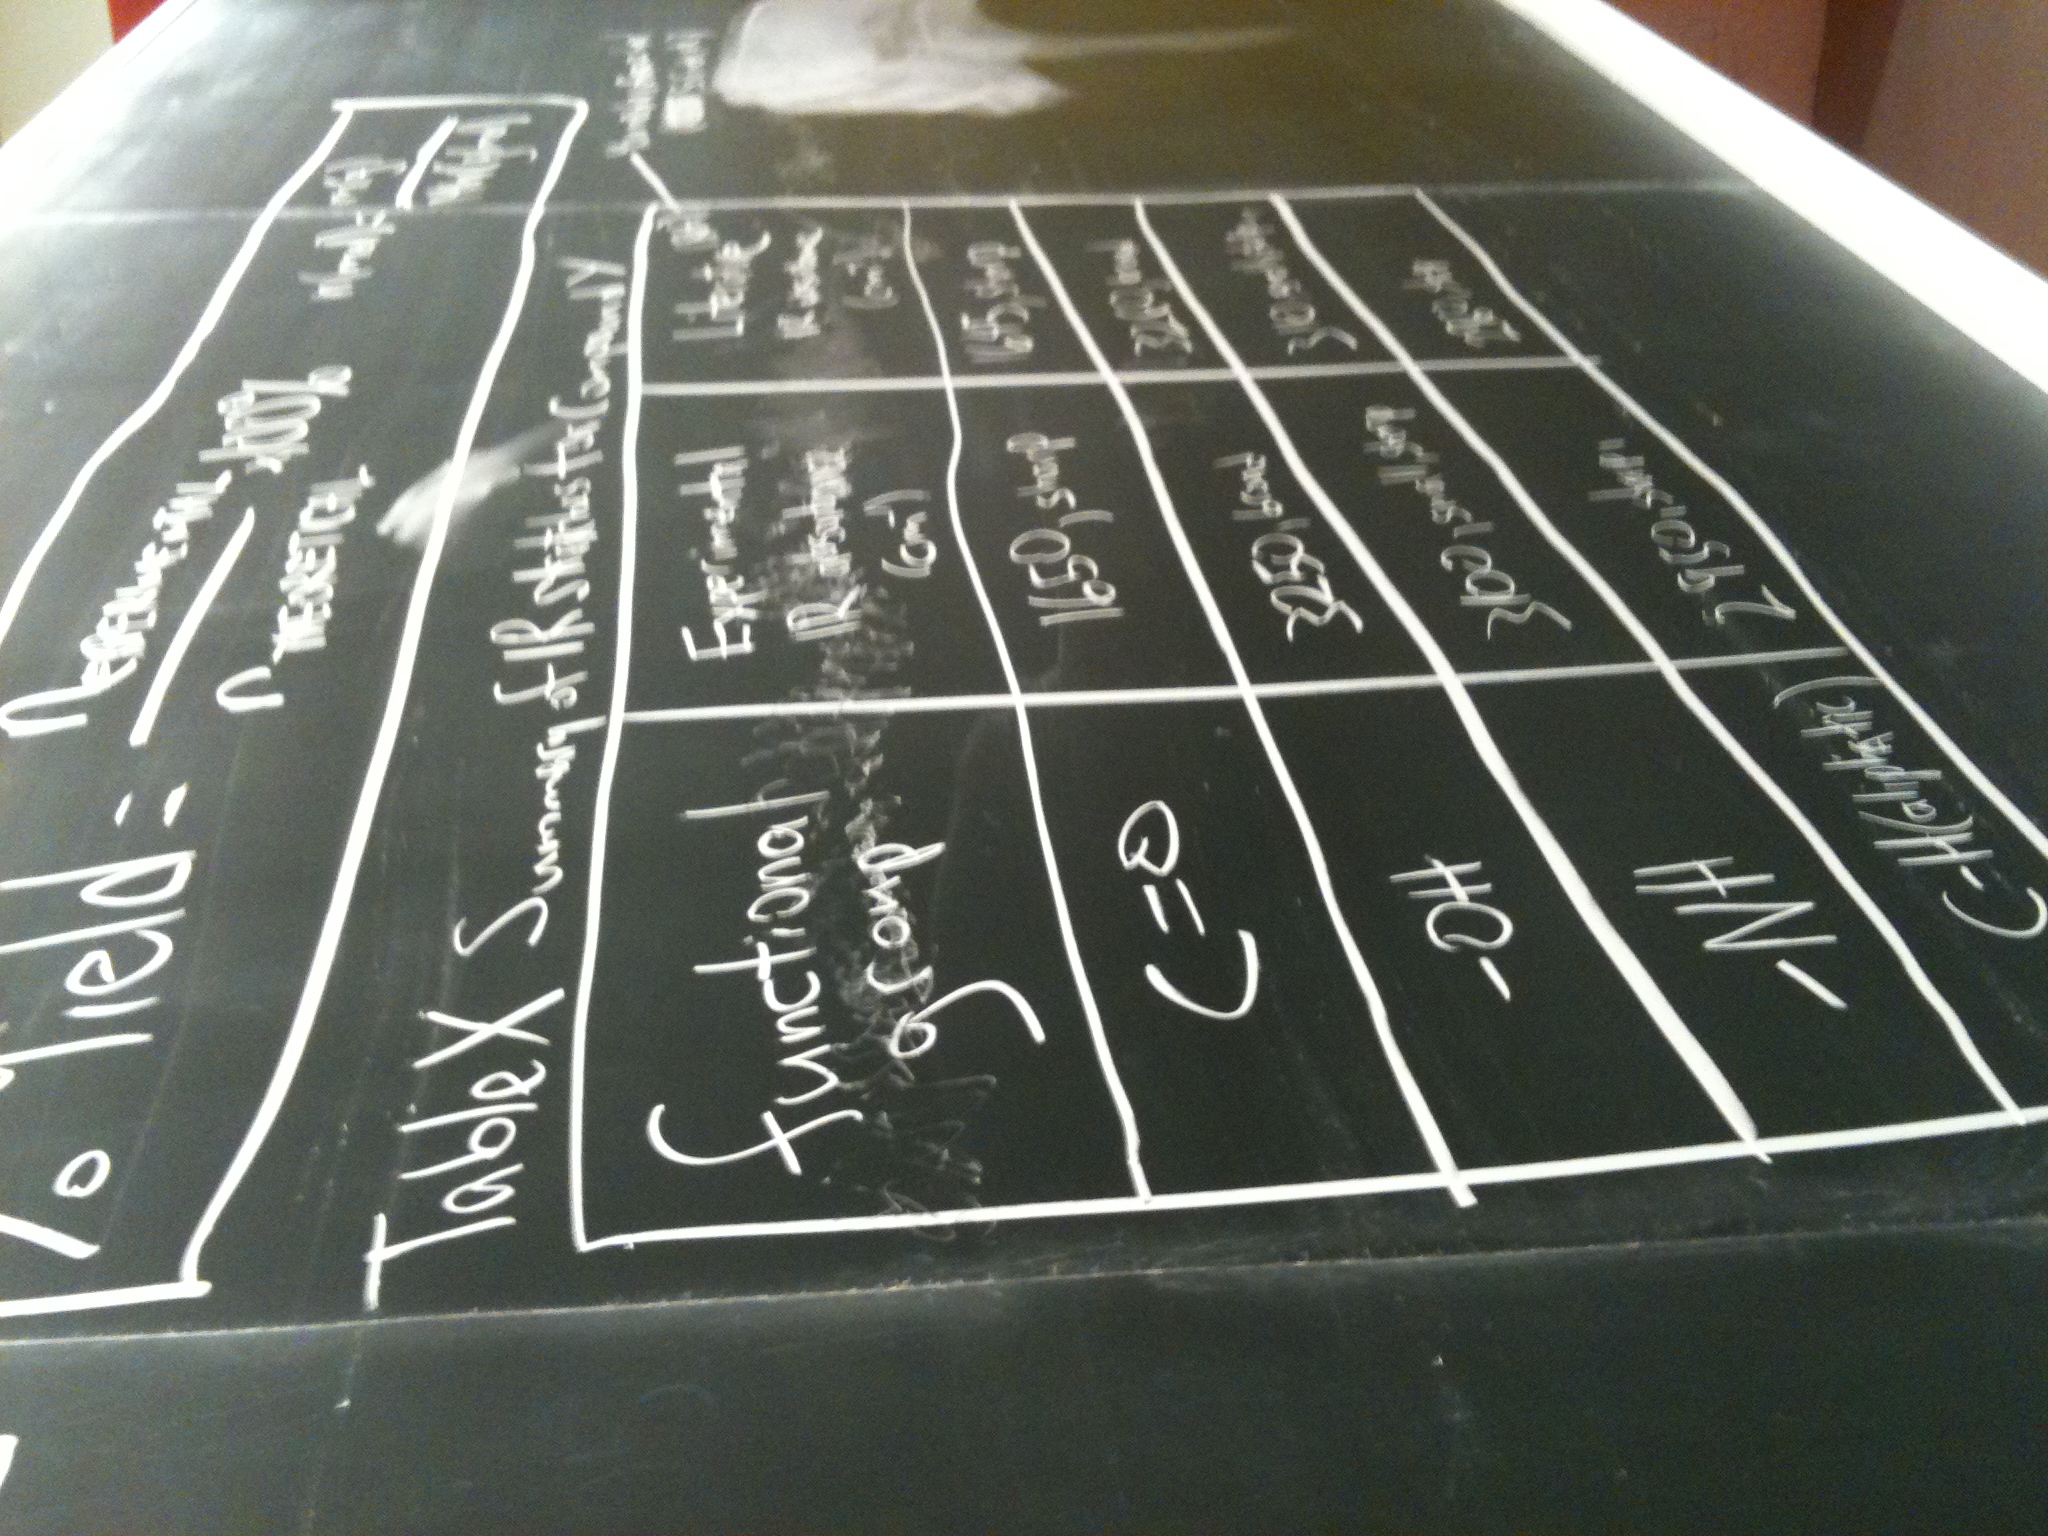 % Yield = nEXPERIMENTAL / nTHEORETICAL x100%
n(mol) = m(g)
Table X Summary of IR stretches for Compound Y
functional group
Experimental IR absorbance (cm⁻¹)
Literature IR (cm⁻¹)
C=O
1650, sharp
1645, sharp
-OH
3250, broad
broad
-NH
3100, small, sharp
C-H (aliphatic)
2950, sharp